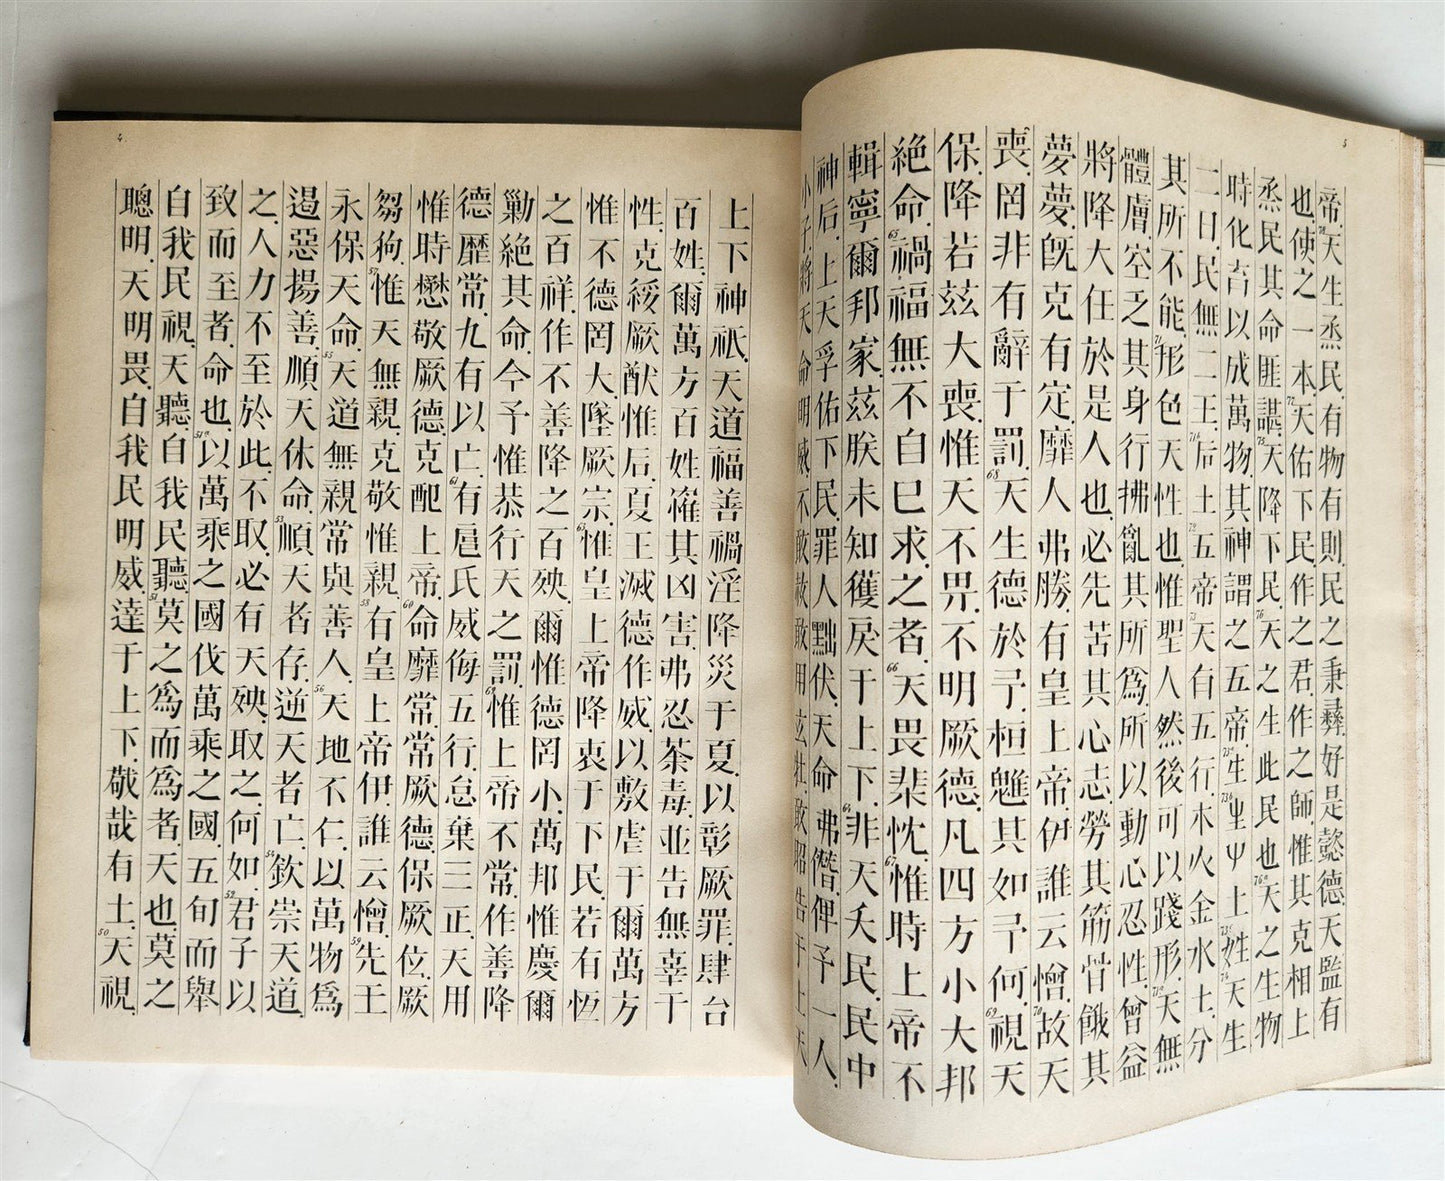 聰明.天明畏.自我民明威達于上下.敬哉有土.50天視
自我民視.天聽自我民聽.51莫之爲而爲者.天也.莫之
致而至者.命也.51a以萬乘之國伐萬乘之國.五旬而舉
之.人力不至於此.不取.必有天殃.取之.何如.52君子以
遏惡揚善.順天休命.53順天者存.逆天者亡.54欽崇天道
永保天命.55天道無親常與善人.56天地不仁.以萬物爲
芻狗.57惟天無親.克敬惟親.58有皇上帝.伊誰云憎.59先王
惟時懋敬厥德.克配上帝.60命靡常.常厥德.保厥位.厥
德靡常.九有以亡.61有扈氏威侮五行.怠棄三正.天用
勦絕其命.今予惟恭行天之罰.62惟上帝不常.作善降
之百祥.作不善降之百殃.爾惟德罔小.萬邦惟慶.爾
惟不德罔大.墜厥宗.63惟皇上帝降衷于下民.若有恆
性.克綏厥猷惟后.夏王滅德作威.以敷虐于爾萬方
百姓.爾萬方百姓.罹其凶害.弗忍荼毒.並告無辜于
上下神祇.天道福善禍淫.降災于夏.以彰厥罪.肆台
4
小子.將天命明威.不敢赦.敢用玄牡.敢昭告于上天
神后.上天孚佑下民.罪人黜伏.天命弗僭.俾予一人.
輯寧爾邦家.茲朕未知獲戾于上下.64非天夭民.民中
絕命.65禍福無不自己求之者.66天畏棐忱.67惟時上帝不
保.降若茲大喪.惟天不畀.不明厥德.凡四方小大邦
喪.罔非有辭于罰.68天生德於予.桓魋其如予何.69視天
夢夢.旣克有定.靡人弗勝.有皇上帝.伊誰云憎.70故天
將降大任於是人也.必先苦其心志.勞其筋骨.餓其
體膚.空乏其身.行拂亂其所爲.所以動心忍性.曾益
其所不能.71形色天性也.惟聖人然後可以踐形.71a天無
二日.民無二王.71b后土.72五帝.73天有五行.木火金水土.分
時化育以成萬物.其神謂之五帝.73a生 土 姓.74天生
烝民其命匪諶.75天降下民.76天之生此民也.76a天之生物
也.使之一本.77天佑下民.作之君.作之師.惟其克相上
帝.78天生烝民.有物有則.民之秉彝.好是懿德.天監有
5